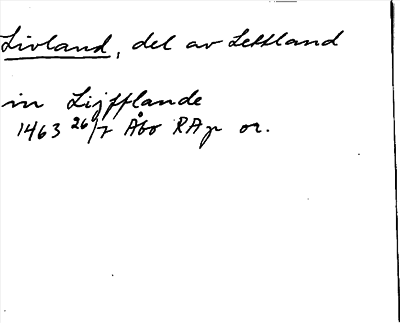 Livland, del av Lettland
in Lijfflande
1463 26/7 Åbo RAp or.